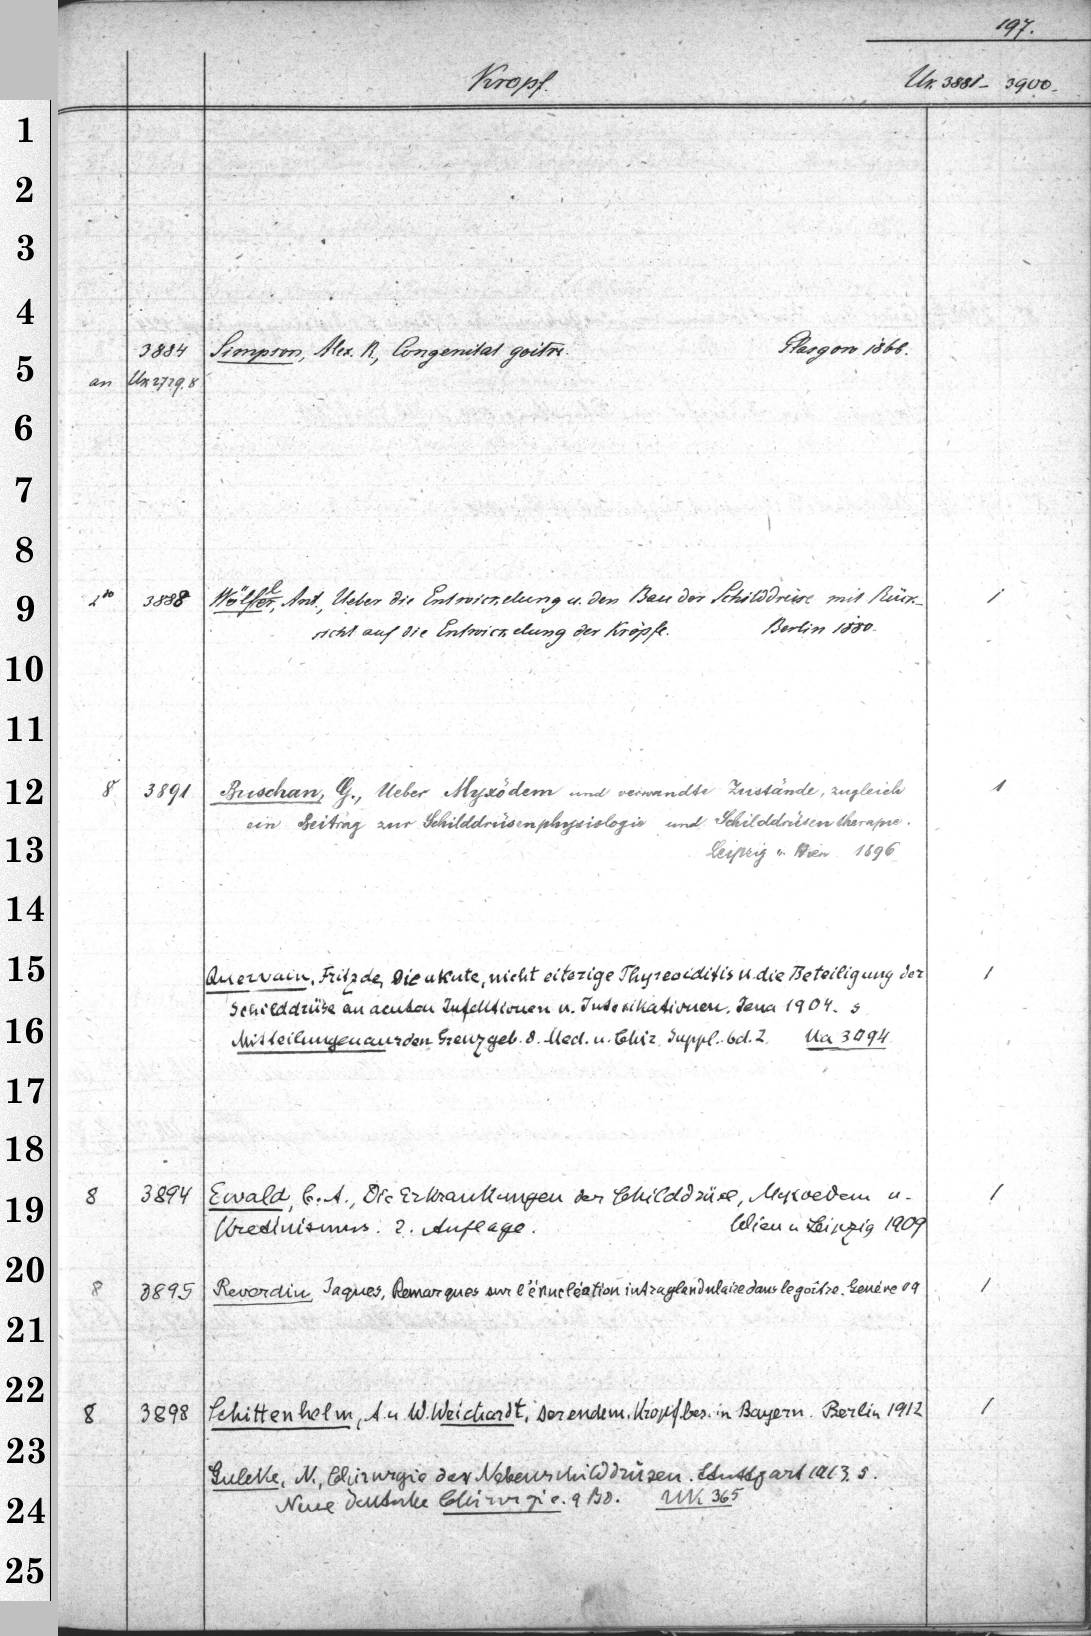 197.
Kropf. Un. 3881 - 3900.
1
2
3
4
3884 Simpson, Alex. R., Congenital goitre. Glasgow 1866.
5
an Un 2729. 8
6
7
8
3888 Wölfler, Ant., Ueber die Entwickelung u. den Bau der Schilddrüse mit Rück- 1
9
sicht auf die Entwickelung der Kröpfe. Berlin 1880.
10
11
12 8 3891 Buschan, G., Ueber Myxödem und verwandte Zustände, zugleich 1
ein Beitrag zur Schilddrüsenphysiologie und Schilddrüsentherapie.
13 Leipzig u. Wien 1896
14
15 Quervain, Fritz de, Die akute, nicht eiterige Thyreoiditis u. die Beteiligung der 1
Schilddrüse an acuten Infektionen u. Intoxikationen. Jena 1904. s
16 Mitteilungen aus den Grenzgeb. d. Med. u. Chir. Suppl. bd. 2. Ua 3494
17
18
8 3894 Ewald, C. A., Die Erkrankungen der Schilddrüse, Myxoedem u. 1
19
Kretinismus. 2. Auflage. Wien u Leipzig 1909
20
8 3895 Reverdin, Jaques, Remarques sur l'énucléation intraglandulaire dans le goître. Genève 09 1
21
22
8 3898 Schittenhelm, A. u. W. Weichardt, Der endem. Kropf bes. in Bayern. Berlin 1912 1
23
Guleke, N., Chirurgie der Nebenschilddrüsen. Stuttgart 1913. s.
24 Neue Deutsche Chirurgie. 9 Bd. UK 365
25